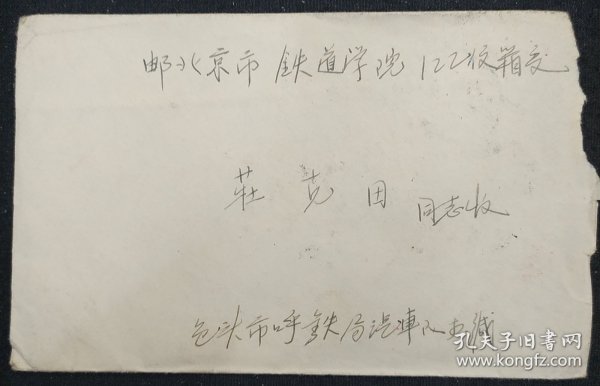 邮北京市 铁道学院 122收箱交
莊克因 同志收
包头市呼铁局汽車队缄
孔夫子旧书网
www.kongfz.com